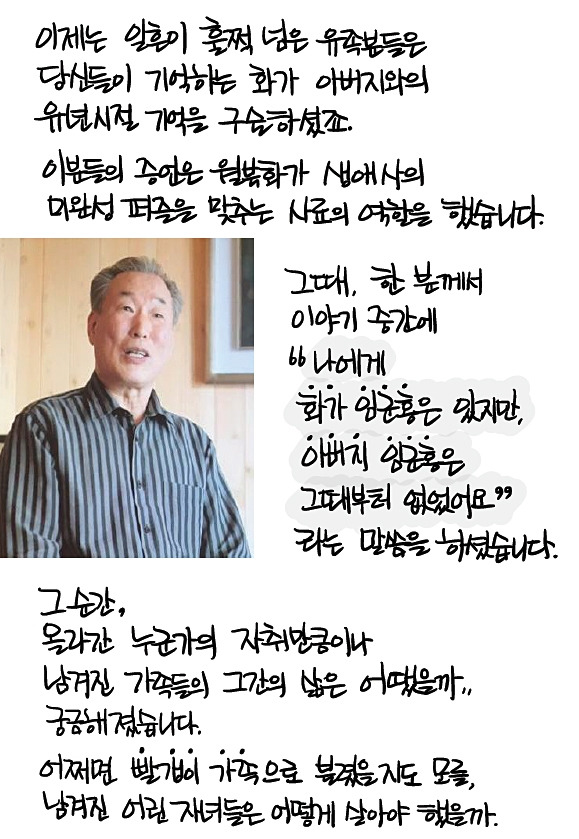 이제는 일흔이 훌쩍 넘은 유족분들은
당신들이 기억하는 화가 아버지와의
유년시절 기억을 구술하셨죠.
이분들의 증언은 월북화가 생애사의
미완성 퍼즐을 맞추는 사료의 역할을 했습니다.
그때, 한 분께서
이야기 중간에
“나에게
화가 임군홍은 있지만,
아버지 임군홍은
그때부터 없었어요”
라는 말씀을 하셨습니다.
그 순간,
올라간 누군가의 자취만큼이나
남겨진 가족들의 그간의 삶은 어땠을까..
궁금해졌습니다.
어쩌면 빨갱이 가족으로 불렸을지도 모를,
남겨진 어린 자녀들은 어떻게 살아야 했을까.